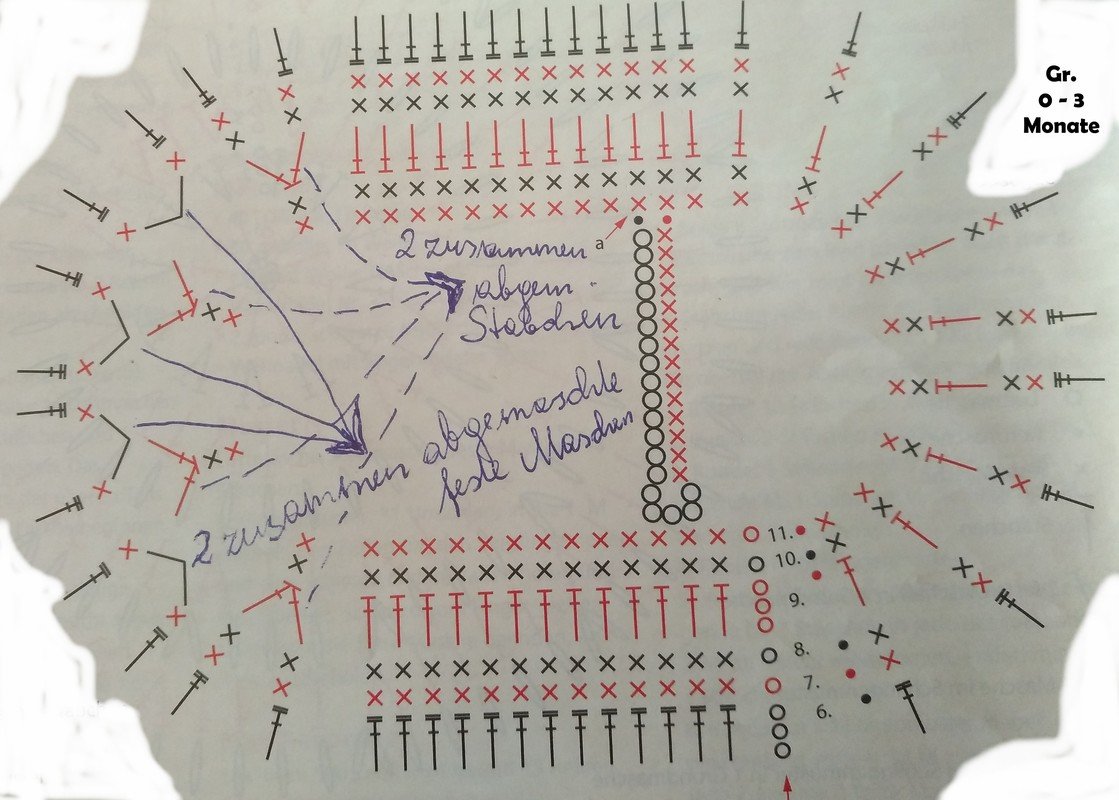 Gr.
0 - 3
Monate
a
2 zusammen
abgem.
Stäbchen
2 zusammen abgemaschte
feste Maschen
11.
10.
9.
8.
7.
6.